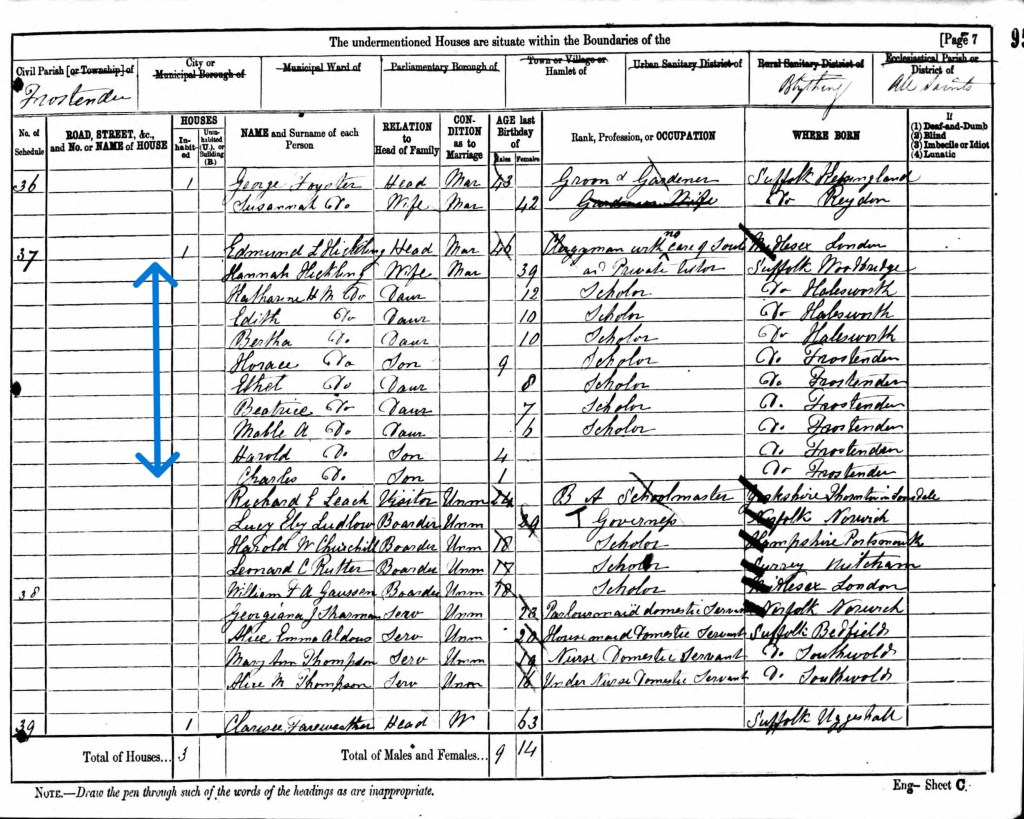 The undermentioned Houses are situate within the Boundaries of the [Page 7 95
Civil Parish [or Township] of City or Municipal Borough of Municipal Ward of Parliamentary Borough of Town or Village or Hamlet of Urban Sanitary District of Rural Sanitary District of Ecclesiastical Parish or District of
Frostenden Blything All Saints
No. of Schedule ROAD, STREET, &c., and No. or NAME of HOUSE HOUSES Inhabited Uninhabited (U.), or Building (B.) NAME and Surname of each Person RELATION to Head of Family CONDITION as to Marriage AGE last Birthday of Males Females Rank, Profession, or OCCUPATION WHERE BORN If (1) Deaf-and-Dumb (2) Blind (3) Imbecile or Idiot (4) Lunatic
36 1 George Foyster Head Mar 43 Groom & Gardener Suffolk Kessingland
Susannah Do Wife Mar 42 Gardiners Wife Do Reydon
37 1 Edmund L Hickling Head Mar 46 Clergyman with no care of Souls Middlesex London
Hannah Hickling Wife Mar 39 and Private Tutor Suffolk Woodbridge
Katharine H M Do Daur 12 Scholor Do Halesworth
Edith Do Daur 10 Scholor Do Halesworth
Bertha Do Daur 10 Scholor Do Halesworth
Horace Do Son 9 Scholor Do Frostenden
Ethel Do Daur 8 Scholor Do Frostenden
Beatrice Do Daur 7 Scholor Do Frostenden
Mable A Do Daur 6 Scholor Do Frostenden
Harold Do Son 4 Do Frostenden
Charles Do Son 1 Do Frostenden
Richard E Leach Visitor Unm 24 B A Schoolmaster Yorkshire Thornton in Lonsdale
Lucy Ely Ludlow Boarder Unm 29 Governess Norfolk Norwich
Harold W Churchill Boarder Unm 18 Scholor Hampshire Portsmouth
Leonard C Rutter Boarder Unm 17 Scholor Surrey Mitcham
38 William F A Gaussen Boarder Unm 18 Scholor Middlesex London
Georgiana J Sharman Serv Unm 23 Parlourmaid domestic Servant Norfolk Norwich
Alice Emma Aldous Serv Unm 20 Housemaid Domestic Servant Suffolk Bedfield
Mary Ann Thompson Serv Unm 19 Nurse Domestic Servant Do Southwold
Alice M Thompson Serv Unm 16 Under Nurse Domestic Servant Do Southwold
39 1 Clarisee Fareweather Head W 63 Suffolk Uggeshall
Total of Houses... 3 Total of Males and Females... 9 14
NOTE.—Draw the pen through such of the words of the headings as are inappropriate. Eng- Sheet C.